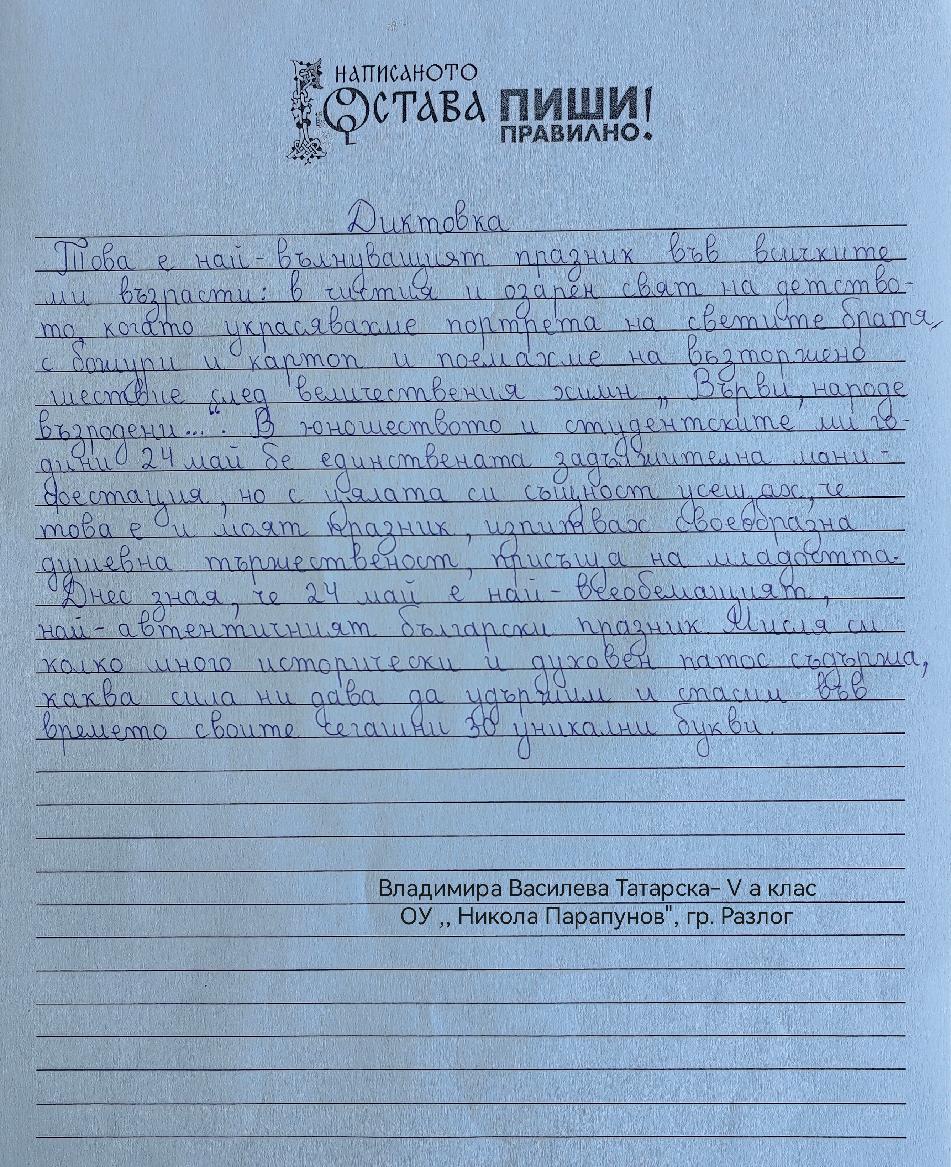 НАПИСАНОТО
ОСТАВА ПИШИ!
ПРАВИЛНО.
Диктовка
Това е най-вълнуващият празник във всичките
ми възрасти: в чистия и озарен свят на детство-
то, когато украсявахме портрета на светите братя,
с божури и картоп и поемахме на възторжено
шествие след величествения химн „Върви, народе
възродени...“. В юношеството и студентските ми го-
дини 24 май бе единствената задължителна мани-
фестация, но с цялата си същност усещах, че
това е и моят празник, изпитвах своеобразна
душевна тържественост, присъща на младостта.
Днес зная, че 24 май е най-всеобемащият,
най-автентичният български празник. Мисля си
колко много исторически и духовен патос съдържа,
каква сила ни дава да удържим и спасим във
времето своите сегашни 30 уникални букви.
Владимира Василева Татарска– V а клас
ОУ ,, Никола Парапунов", гр. Разлог